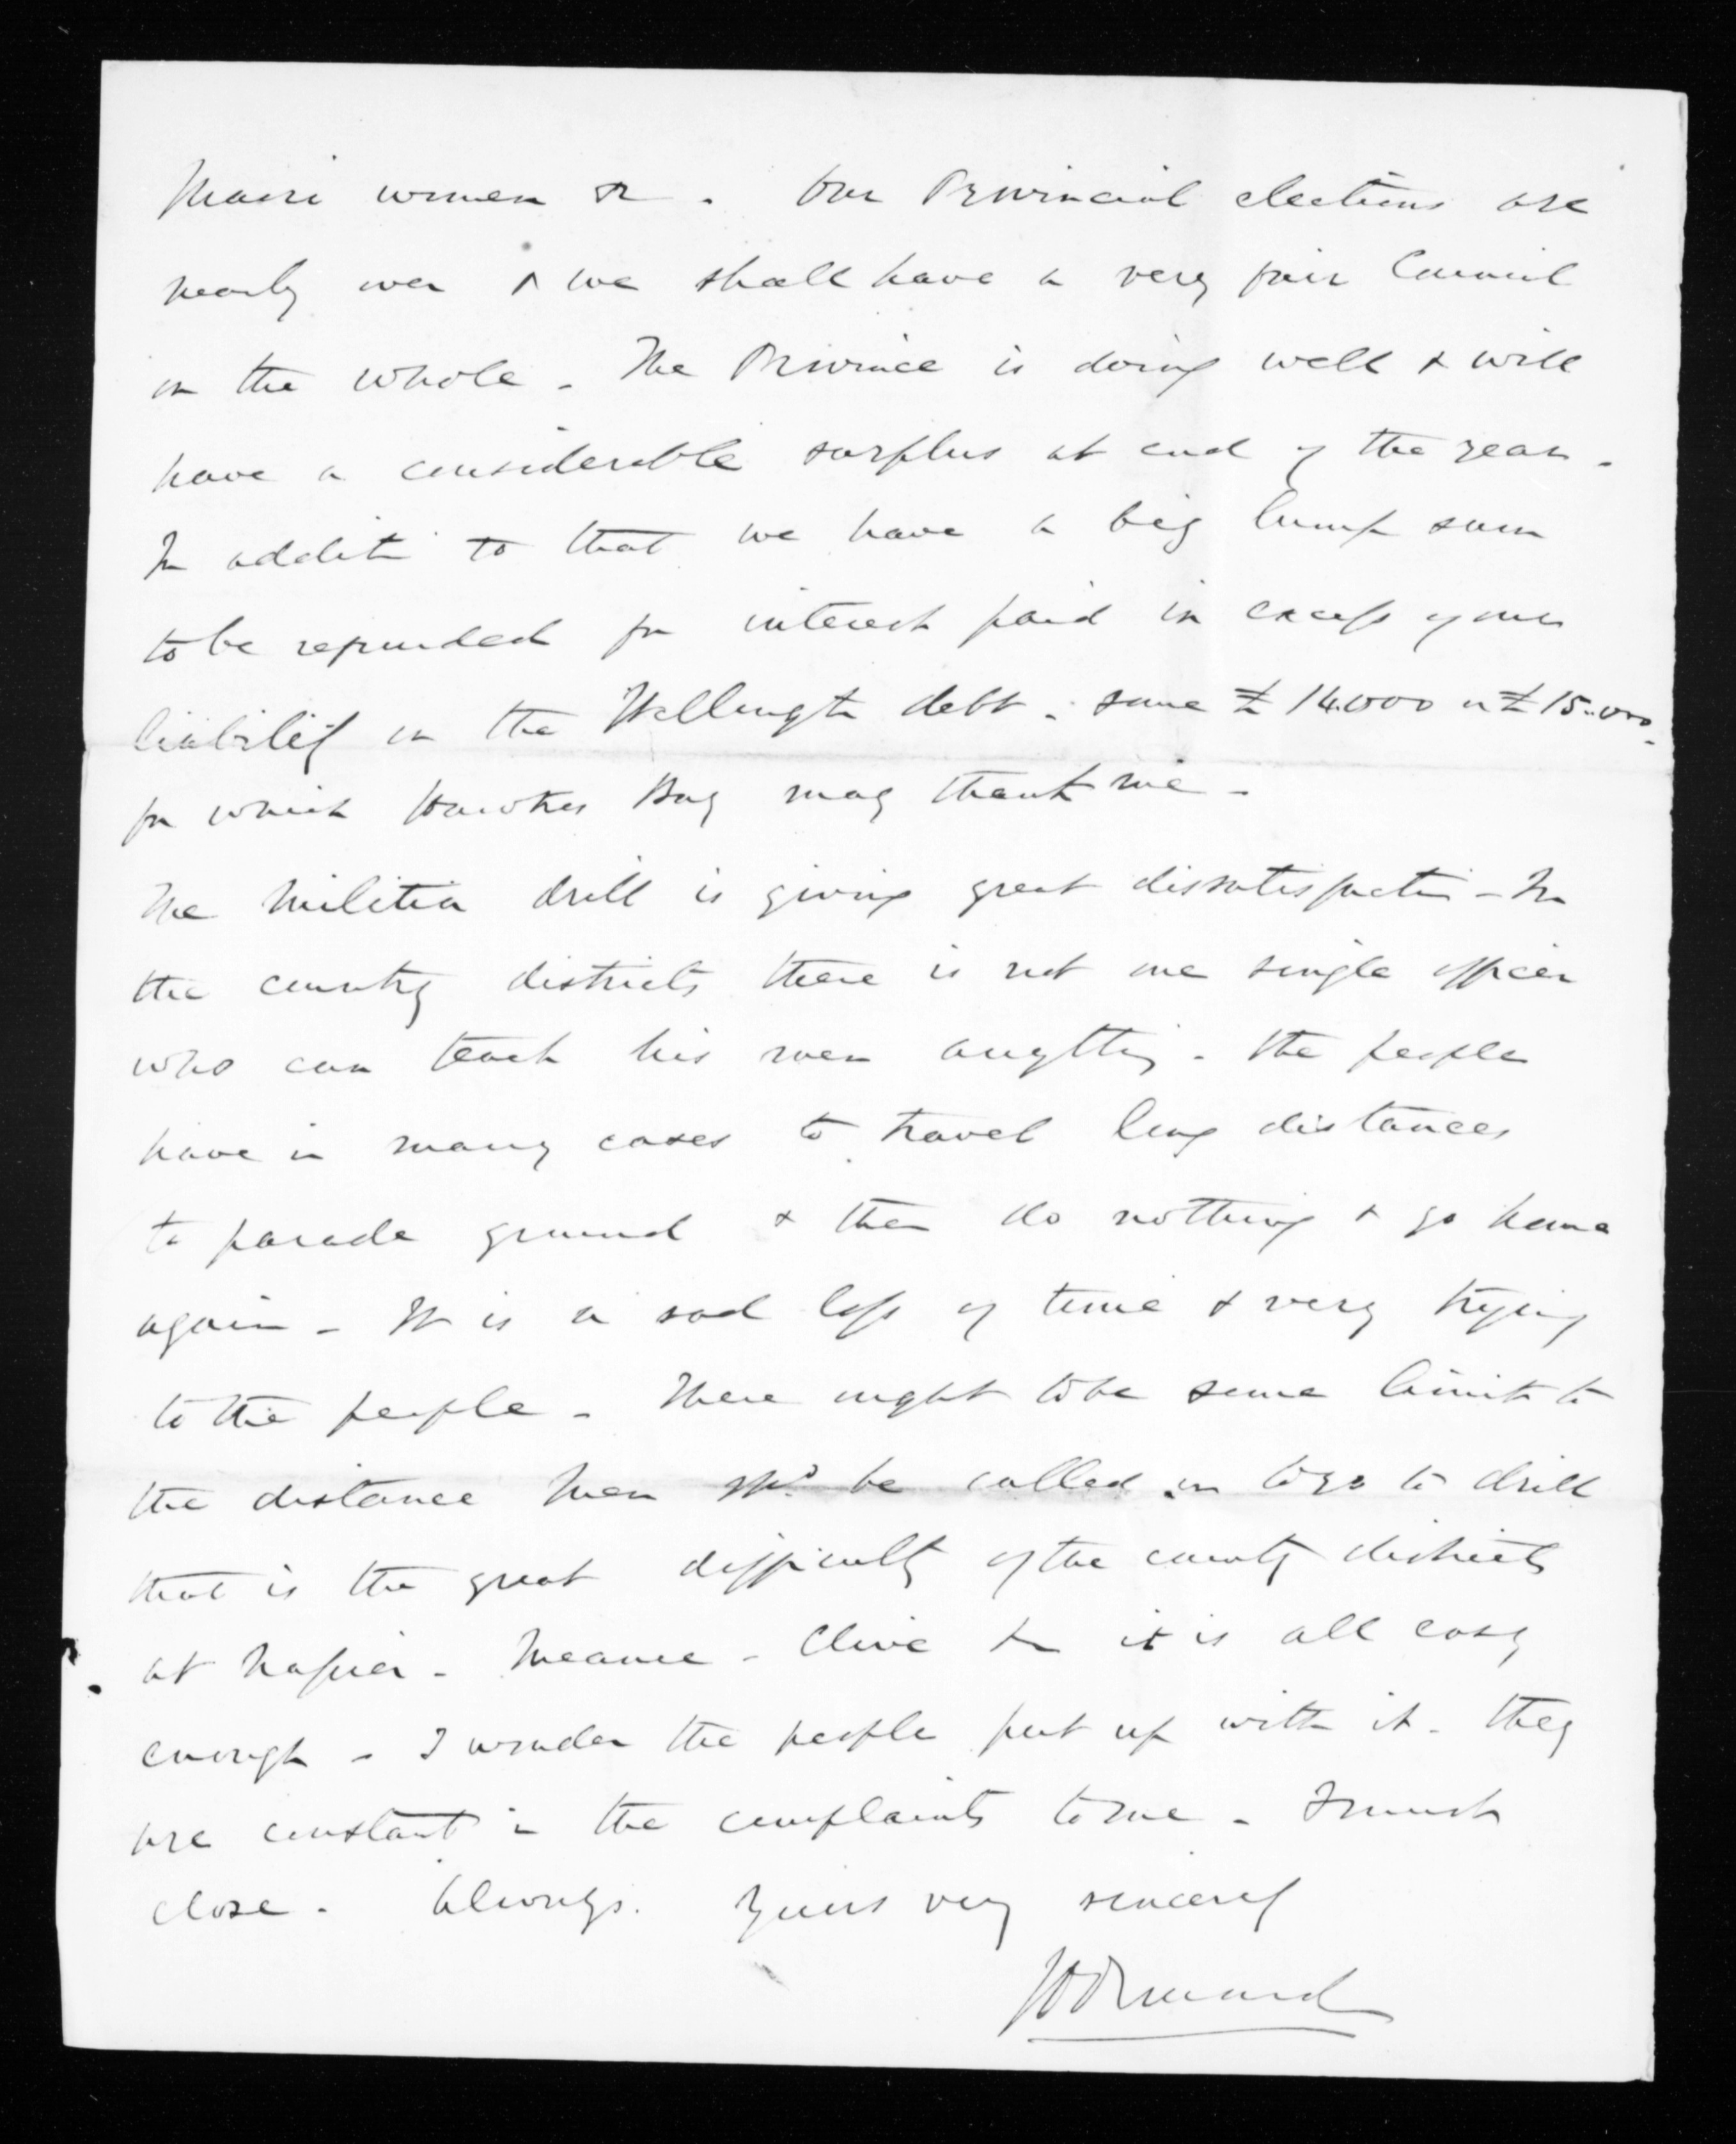 Maori women &c. Our Provincial elections are
nearly over & we shall have a very fair Council
on the whole - The Province is doing well & will
have a considerable surplus at end of the year -
In additn to that we have a big lump sum
to be refunded for interest paid in excess of our
liability on the Wellingtn debt - some £14.000 or £15.000 -
for which Hawkes Bay may thank me -
The Militia drill is giving great dissatisfactn - In
the country districts there is not one single officer
who can teach his men anything - the people
have in many cases to travel long distances
to parade ground & then do nothing & go home
again - It is a sad loss of time & very trying
to the people - There ought to be some limit to
the distance men shd. be called on to go to drill
that is the great difficulty of the country districts
at Napier - Meanee - Clive &c it is all easy
enough - I wonder the people put up with it - they
are constant in the complaints to me - I must
close - Always. Yours very sincerely
JD Ormond